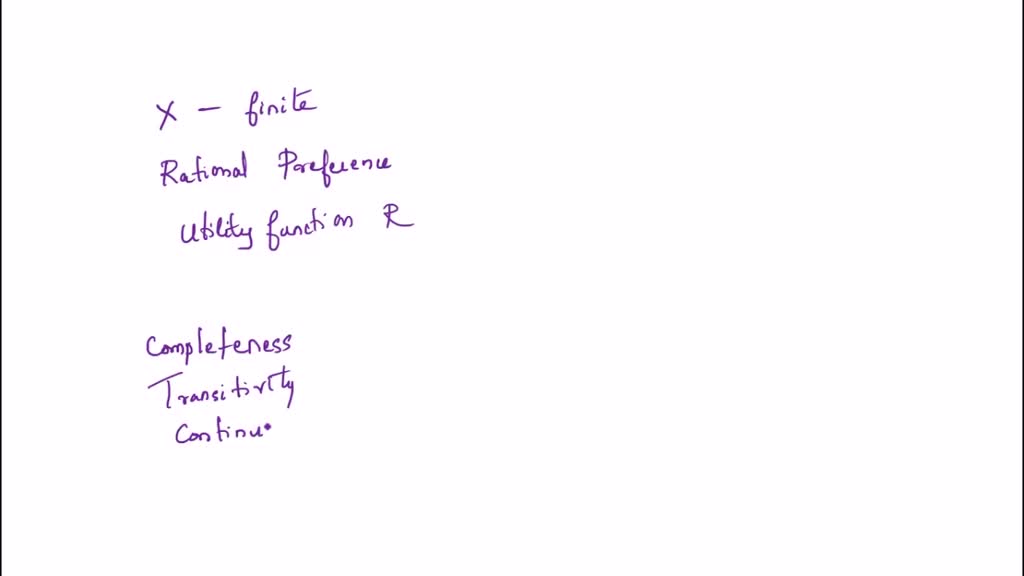 X - finite
Rational Preference
Utility function R
Completeness
Transitivity
Continu